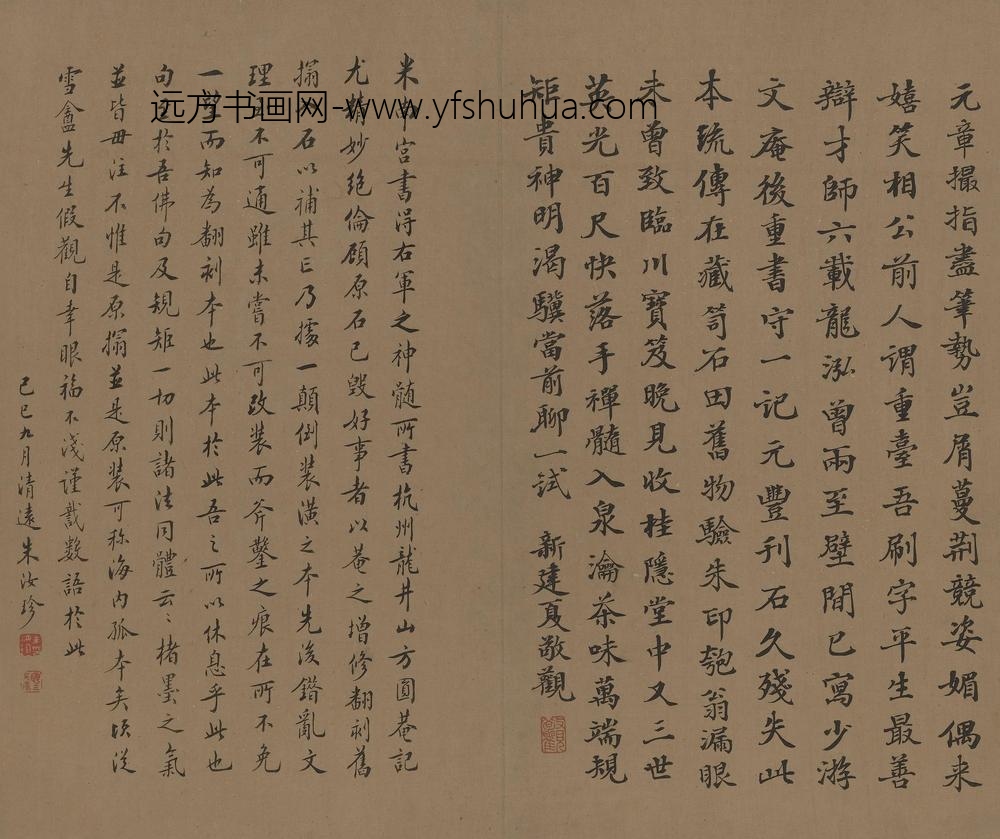 元章撮指盡筆勢豈屑蔓荆競姿媚偶来
嬉笑相公前人謂重臺吾刷字平生最善
辯才師六載龍泓曾兩至壁間已寫少游
文庵後重書守一記元豐刊石久殘失此
本䟽傳在藏笥石田舊物驗朱印匏翁漏眼
未曾致臨川寶笈晚見收桂隱堂中又三世
英光百尺快落手禪髓入泉瀹茶味萬端規
矩貴神明渴驥當前聊一試 新建夏敬觀
米南宮書得右軍之神髄所書杭州龍井山方圓菴記
尤精妙絶倫顧原石已毀好事者以菴之增修翻刻舊
搨入石以補其亡乃據一顛倒裝潢之本先後錯亂文
理不可通雖未嘗不可改装而斧鑿之痕在所不免
一而知為翻刻本也此本於此吾之所以休息乎此也
句於吾佛句及規矩一切則諸法同體云〻楮墨之氣
並皆毋注不惟是原搨並是原装可称海内孤本矣頃从
雪盦先生假觀自幸眼福不淺謹識數語於此
己巳九月清遠朱汝珍
远方书画网-www.yfshuhua.com